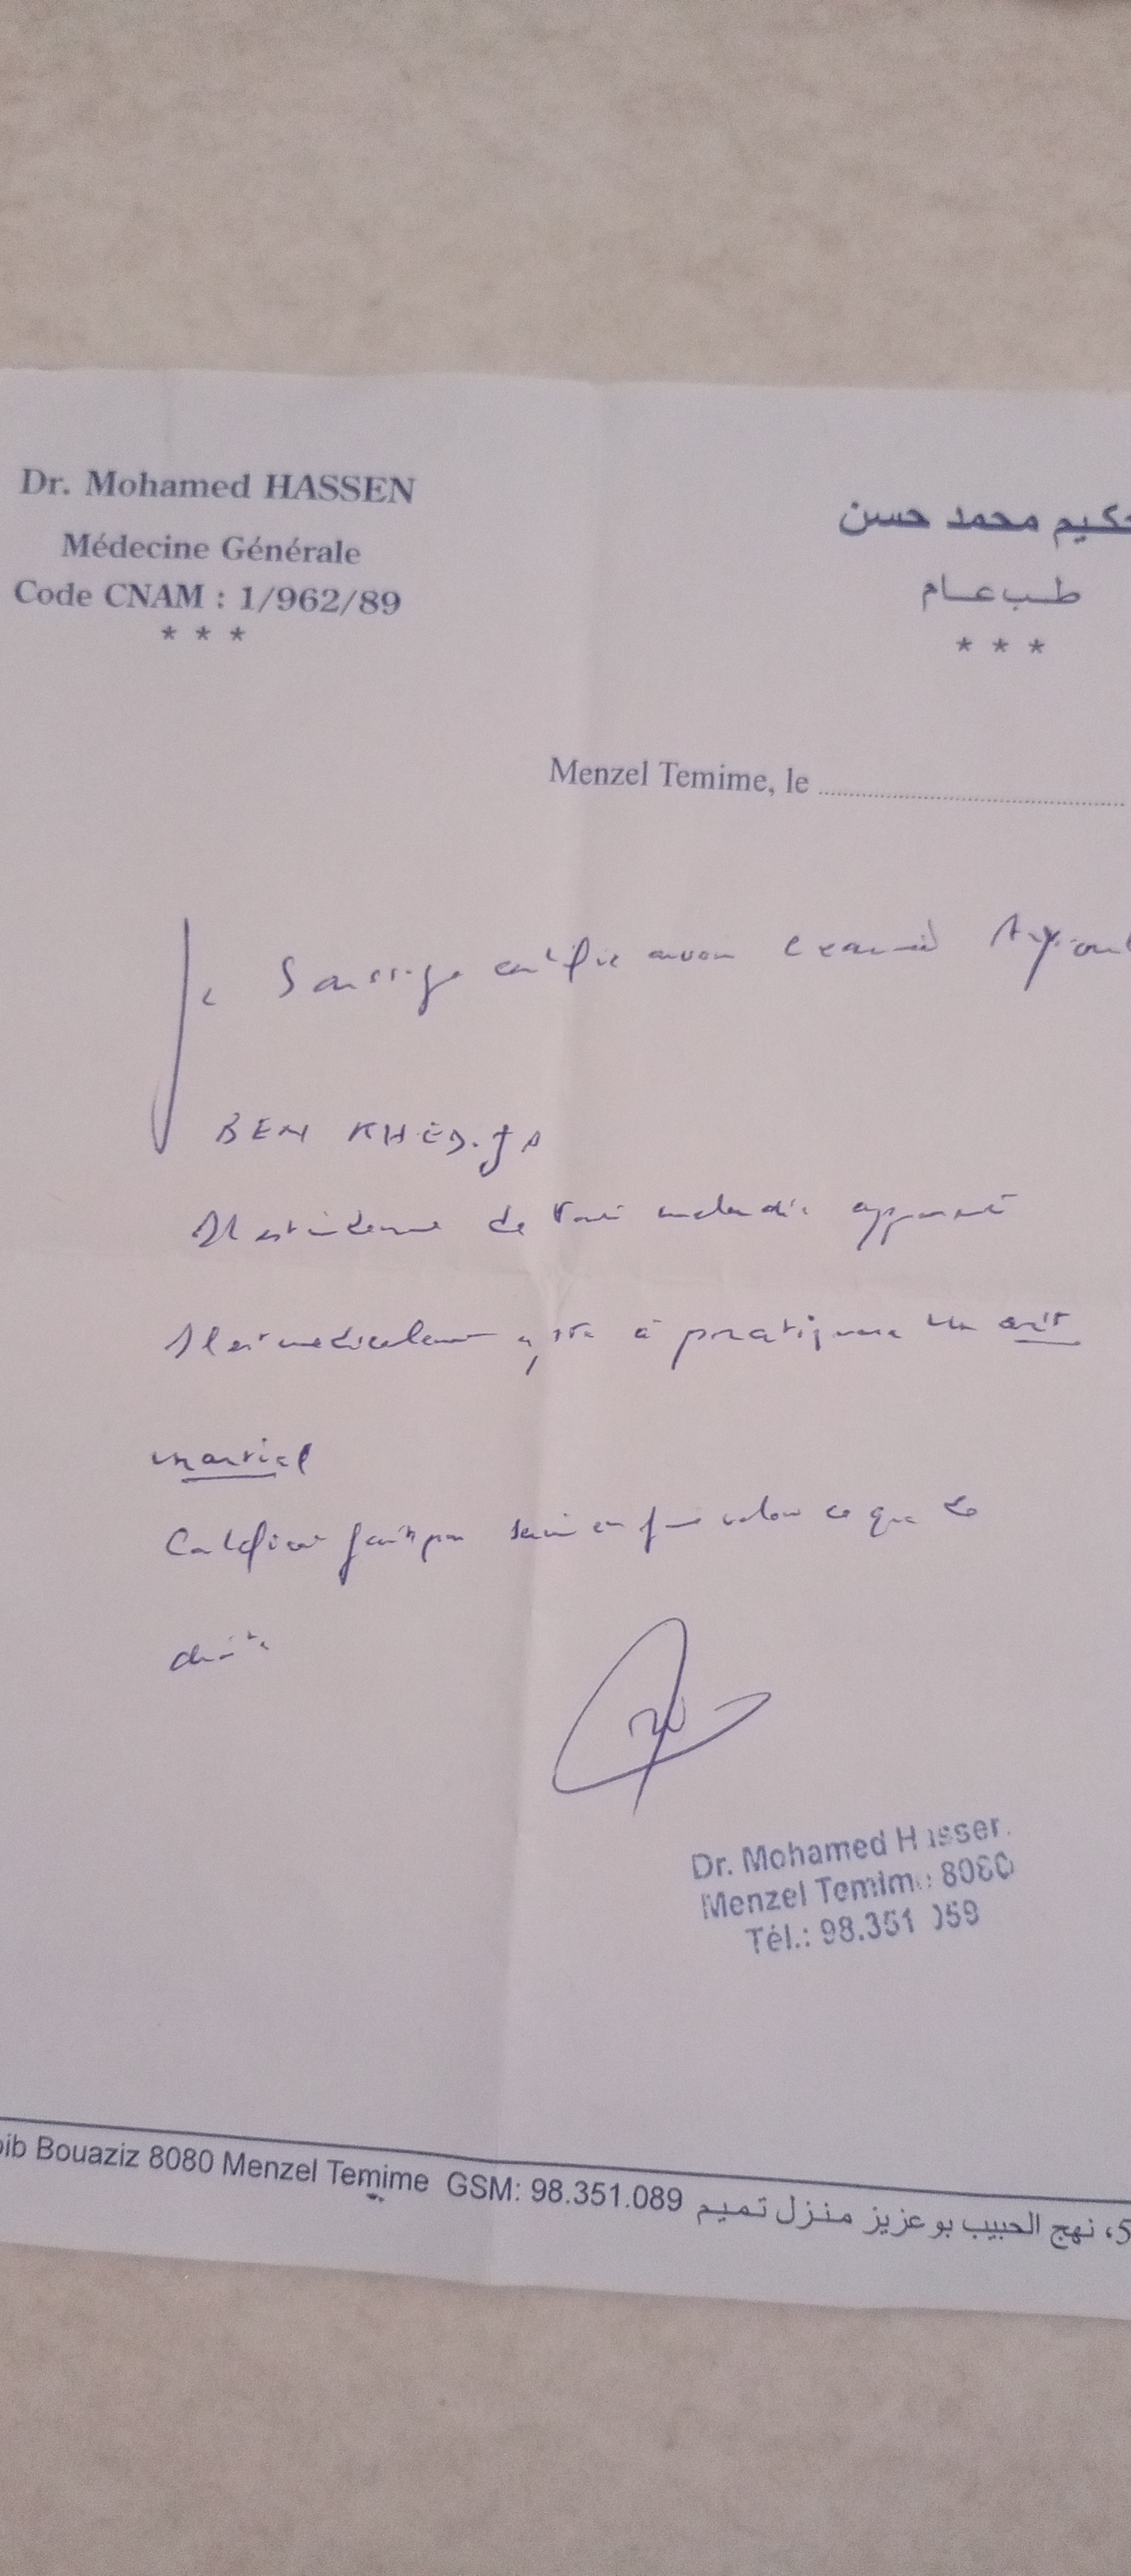 Dr. Mohamed HASSEN
Médecine Générale
Code CNAM : 1/962/89
* * *
حكيم محمد حسن
طب عام
* * *
Menzel Temime, le
Je Soussigné certifie avoir examiné
BEN KHEDIJA
Il est indemne de toute maladie apparente
Il est médicalement apte à pratiquer un art
martial
Certificat fait pour servir en valoir ce que de
droit
Dr. Mohamed Hassen
Menzel Temime 8080
Tél.: 98.351
Bouaziz 8080 Menzel Temime GSM: 98.351.089 نهج الحبيب بوعزيز منزل تميم ،5